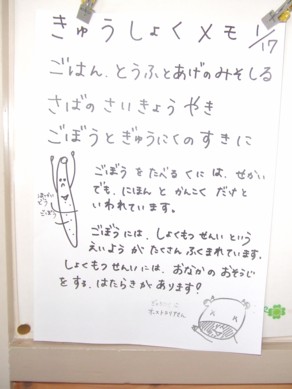 きゅうしょくメモ 1/17
ごはん、とうふとあげのみそしる
さばのさいきょうやき
ごぼうとぎゅうにくのすきに
ごぼうをたべるくには、せかい
でも、にほんとかんこくだけと
いわれています。
ごぼうには、しょくもつせんいという
えいようがたくさんふくまれています。
しょくもつせんいには、おなかのおそうじ
をする、はたらきがあります!